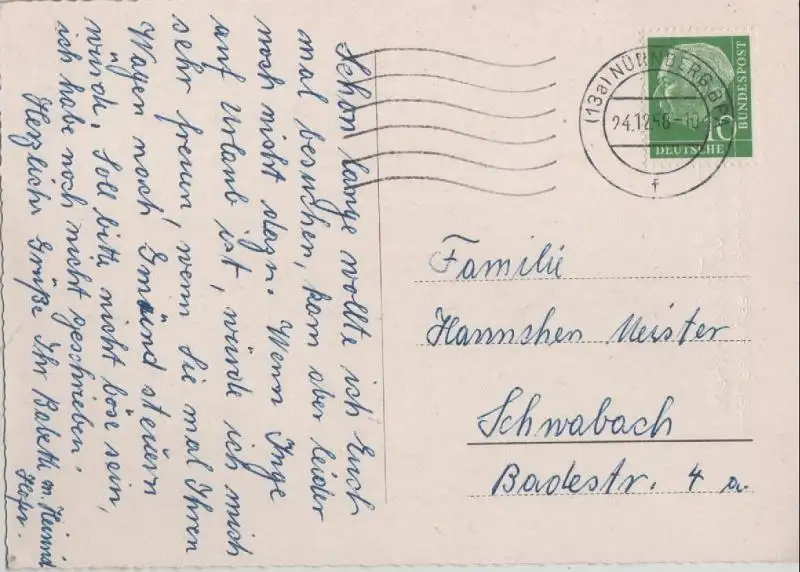 Schon lange wollte ich Euch
mal besuchen, kam aber leider
noch nicht dazu. Wenn Inge
auf Urlaub ist, würde ich mich
sehr freuen, wenn Sie mal Ihren
Wagen nach Gmünd steuern
würde. Soll bitte nicht böse sein,
ich habe noch nicht geschrieben.
Herzliche Grüße Ihr Babeth m.
(13a) NÜRNBERG BP
24.12.58-10
f
10
BUNDESPOST
DEUTSCHE
Familie
Hannchen Meister
Schwabach
Badestr. 4 a.